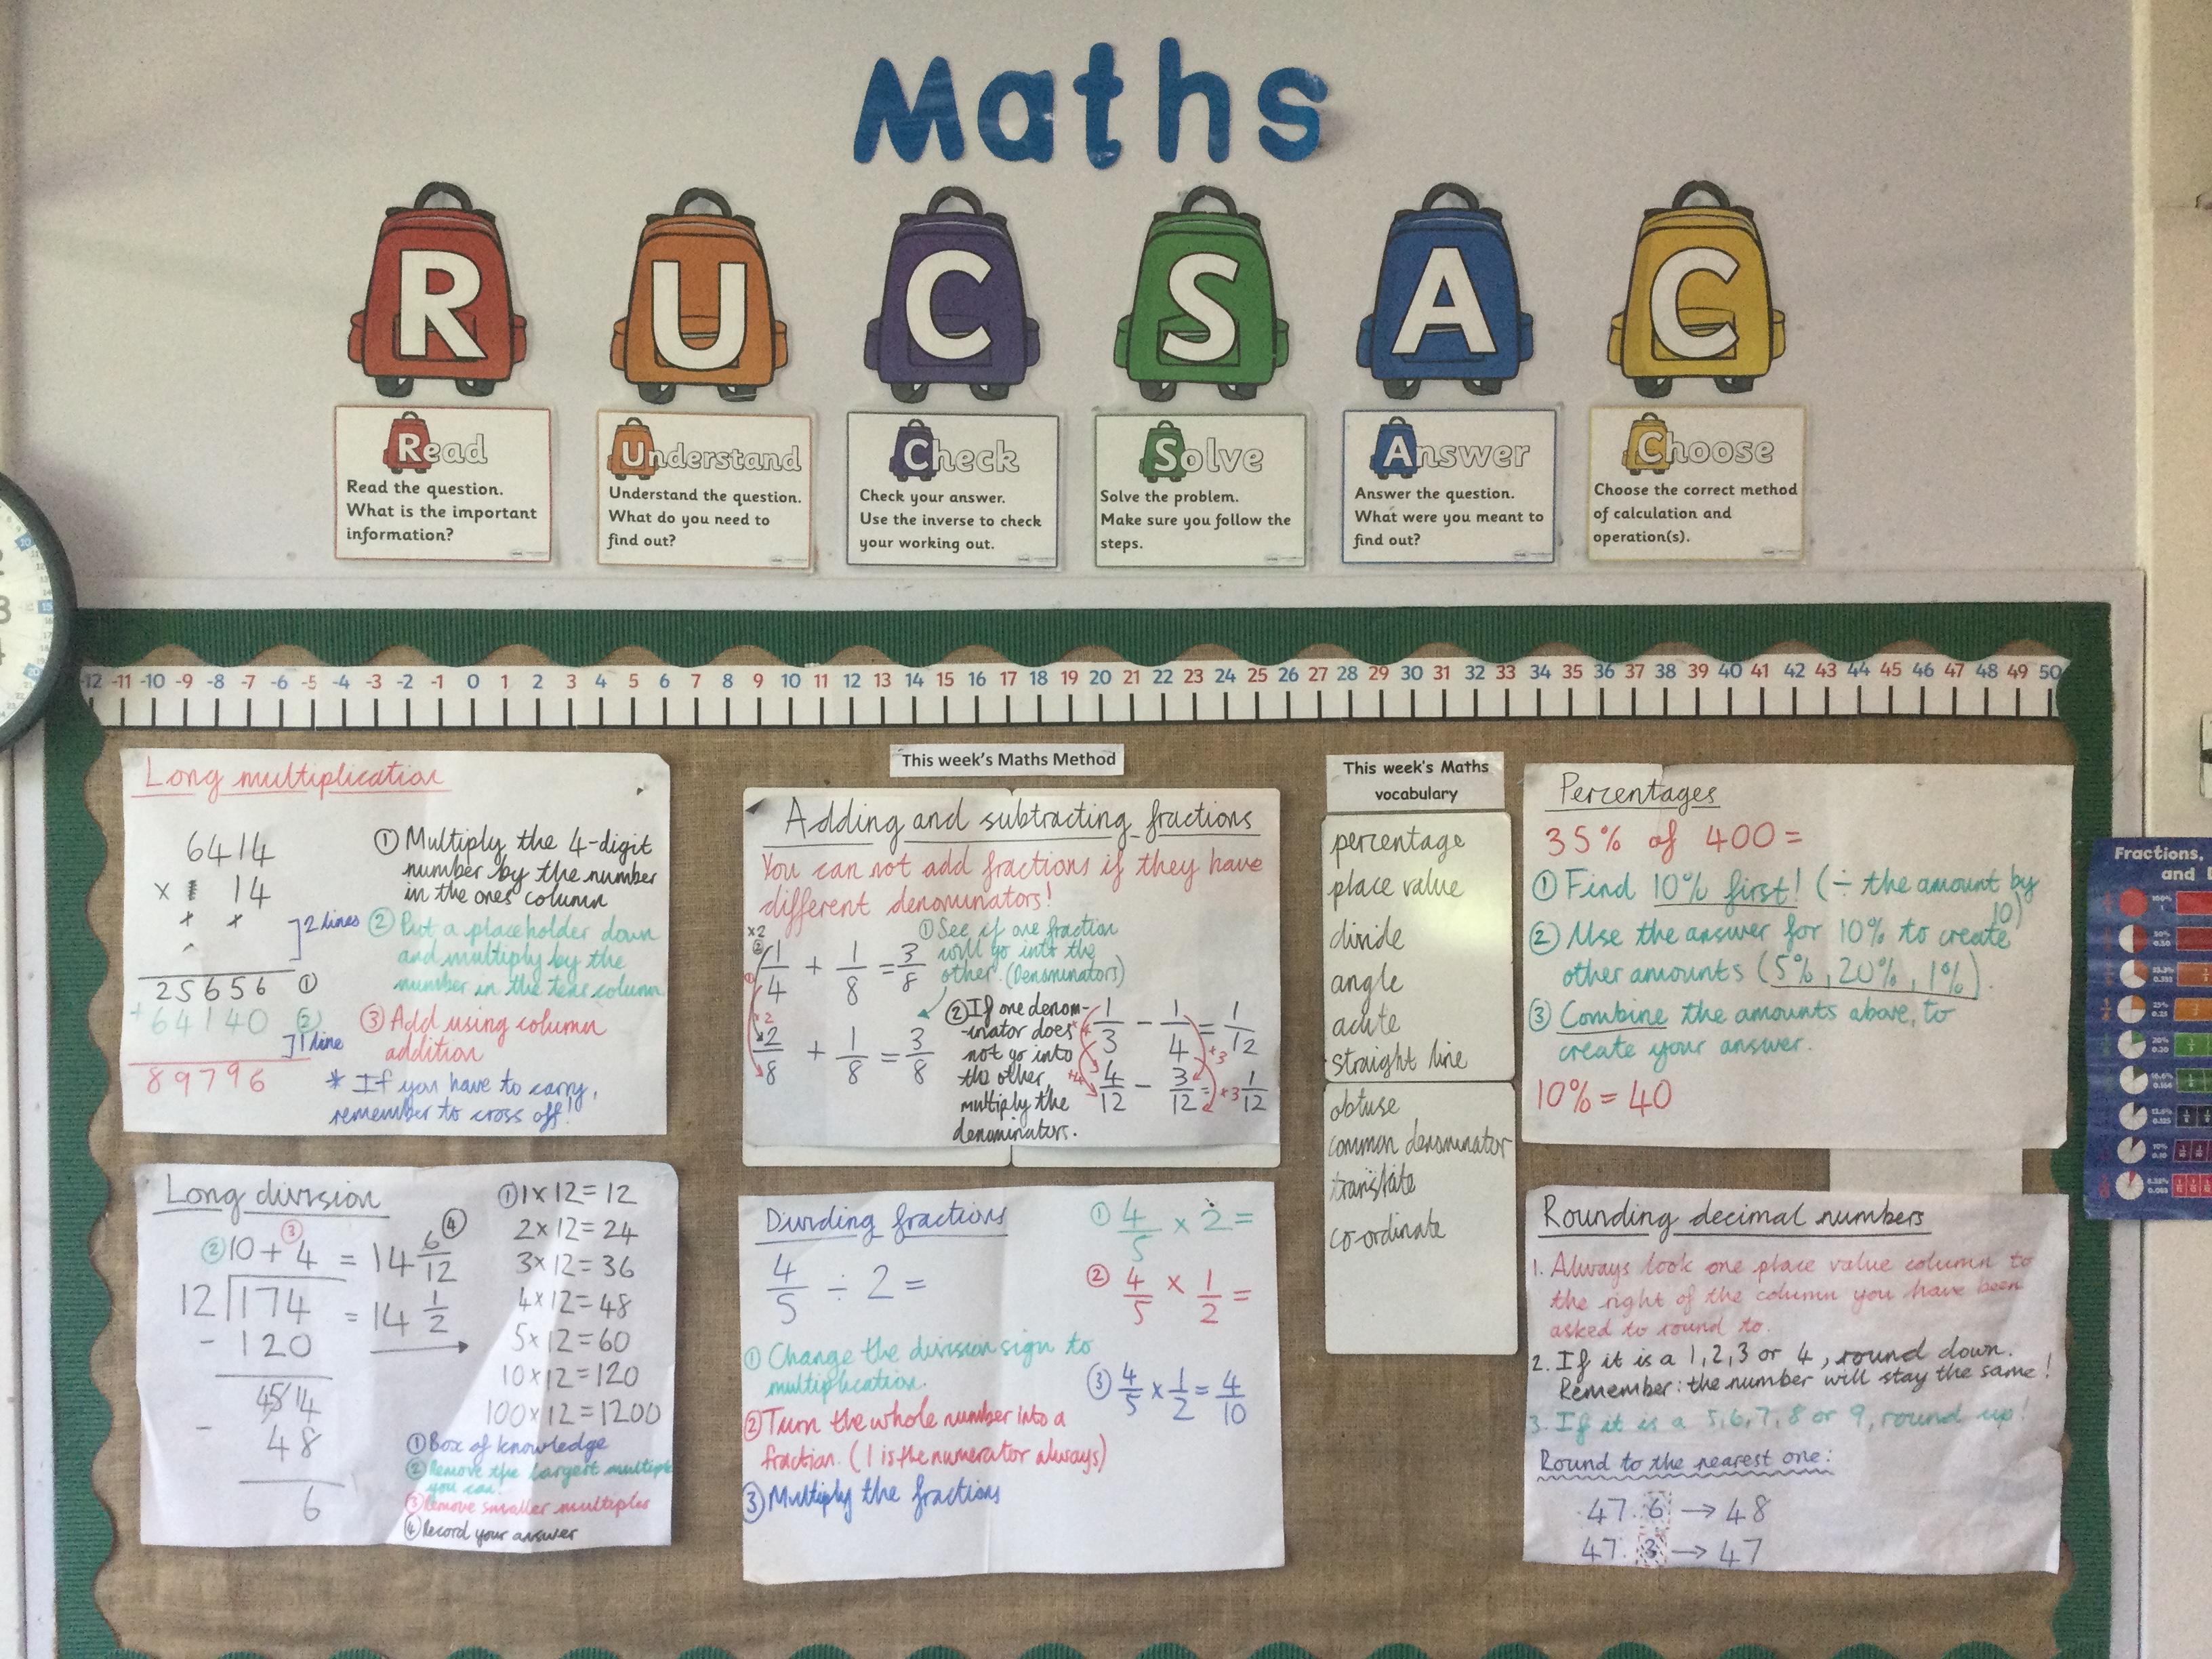 Maths
R U C S A C
Read
Read the question.
What is the important
information?
Understand
Understand the question.
What do you need to
find out?
Check
Check your answer.
Use the inverse to check
your working out.
Solve
Solve the problem.
Make sure you follow the
steps.
Answer
Answer the question.
What were you meant to
find out?
Choose
Choose the correct method
of calculation and
operation(s).
-12 -11 -10 -9 -8 -7 -6 -5 -4 -3 -2 -1 0 1 2 3 4 5 6 7 8 9 10 11 12 13 14 15 16 17 18 19 20 21 22 23 24 25 26 27 28 29 30 31 32 33 34 35 36 37 38 39 40 41 42 43 44 45 46 47 48 49 50
Long multiplication
6414
x 14
2 lines
25656 ①
+64140 ②
1 line
89796
① Multiply the 4-digit
number by the number
in the ones column
② Put a placeholder down
and multiply by the
number in the tens column
③ Add using column
addition
* If you have to carry,
remember to cross off!
Long division
② 10 + ③ 4 = 14 6/12 ④
12 174 = 14 1/2
- 120
4514
- 48
6
① 1 x 12 = 12
2 x 12 = 24
3 x 12 = 36
4 x 12 = 48
5 x 12 = 60
10 x 12 = 120
100 x 12 = 1200
① Box of knowledge
② Remove the largest multiple
you can!
③ Remove smaller multiples
④ Record your answer
This week's Maths Method
Adding and subtracting fractions
You can not add fractions if they have
different denominators!
x2
1/4 + 1/8 = 3/8
x2
2/8 + 1/8 = 3/8
① See if one fraction
will go into the
other. (Denominators)
② If one denom-
-inator does
not go into
the other,
multiply the
denominators.
1/3 - 1/4 = 1/12
4/12 - 3/12 = 1/12
Dividing fractions
4/5 ÷ 2 =
① Change the division sign to
multiplication.
② Turn the whole number into a
fraction. (1 is the numerator always)
③ Multiply the fractions
① 4/5 x 2 =
② 4/5 x 1/2 =
③ 4/5 x 1/2 = 4/10
This week's Maths
vocabulary
percentage
place value
divide
angle
acute
straight line
obtuse
common denominator
translate
co-ordinate
Percentages
35% of 400 =
① Find 10% first! (÷ the amount by
10)
② Use the answer for 10% to create
other amounts (5%, 20%, 1%).
③ Combine the amounts above, to
create your answer.
10% = 40
Rounding decimal numbers
1. Always look one place value column to
the right of the column you have been
asked to round to.
2. If it is a 1, 2, 3 or 4, round down.
Remember: the number will stay the same!
3. If it is a 5, 6, 7, 8 or 9, round up!
Round to the nearest one:
47.6 → 48
47.3 → 47
Fractions,
and